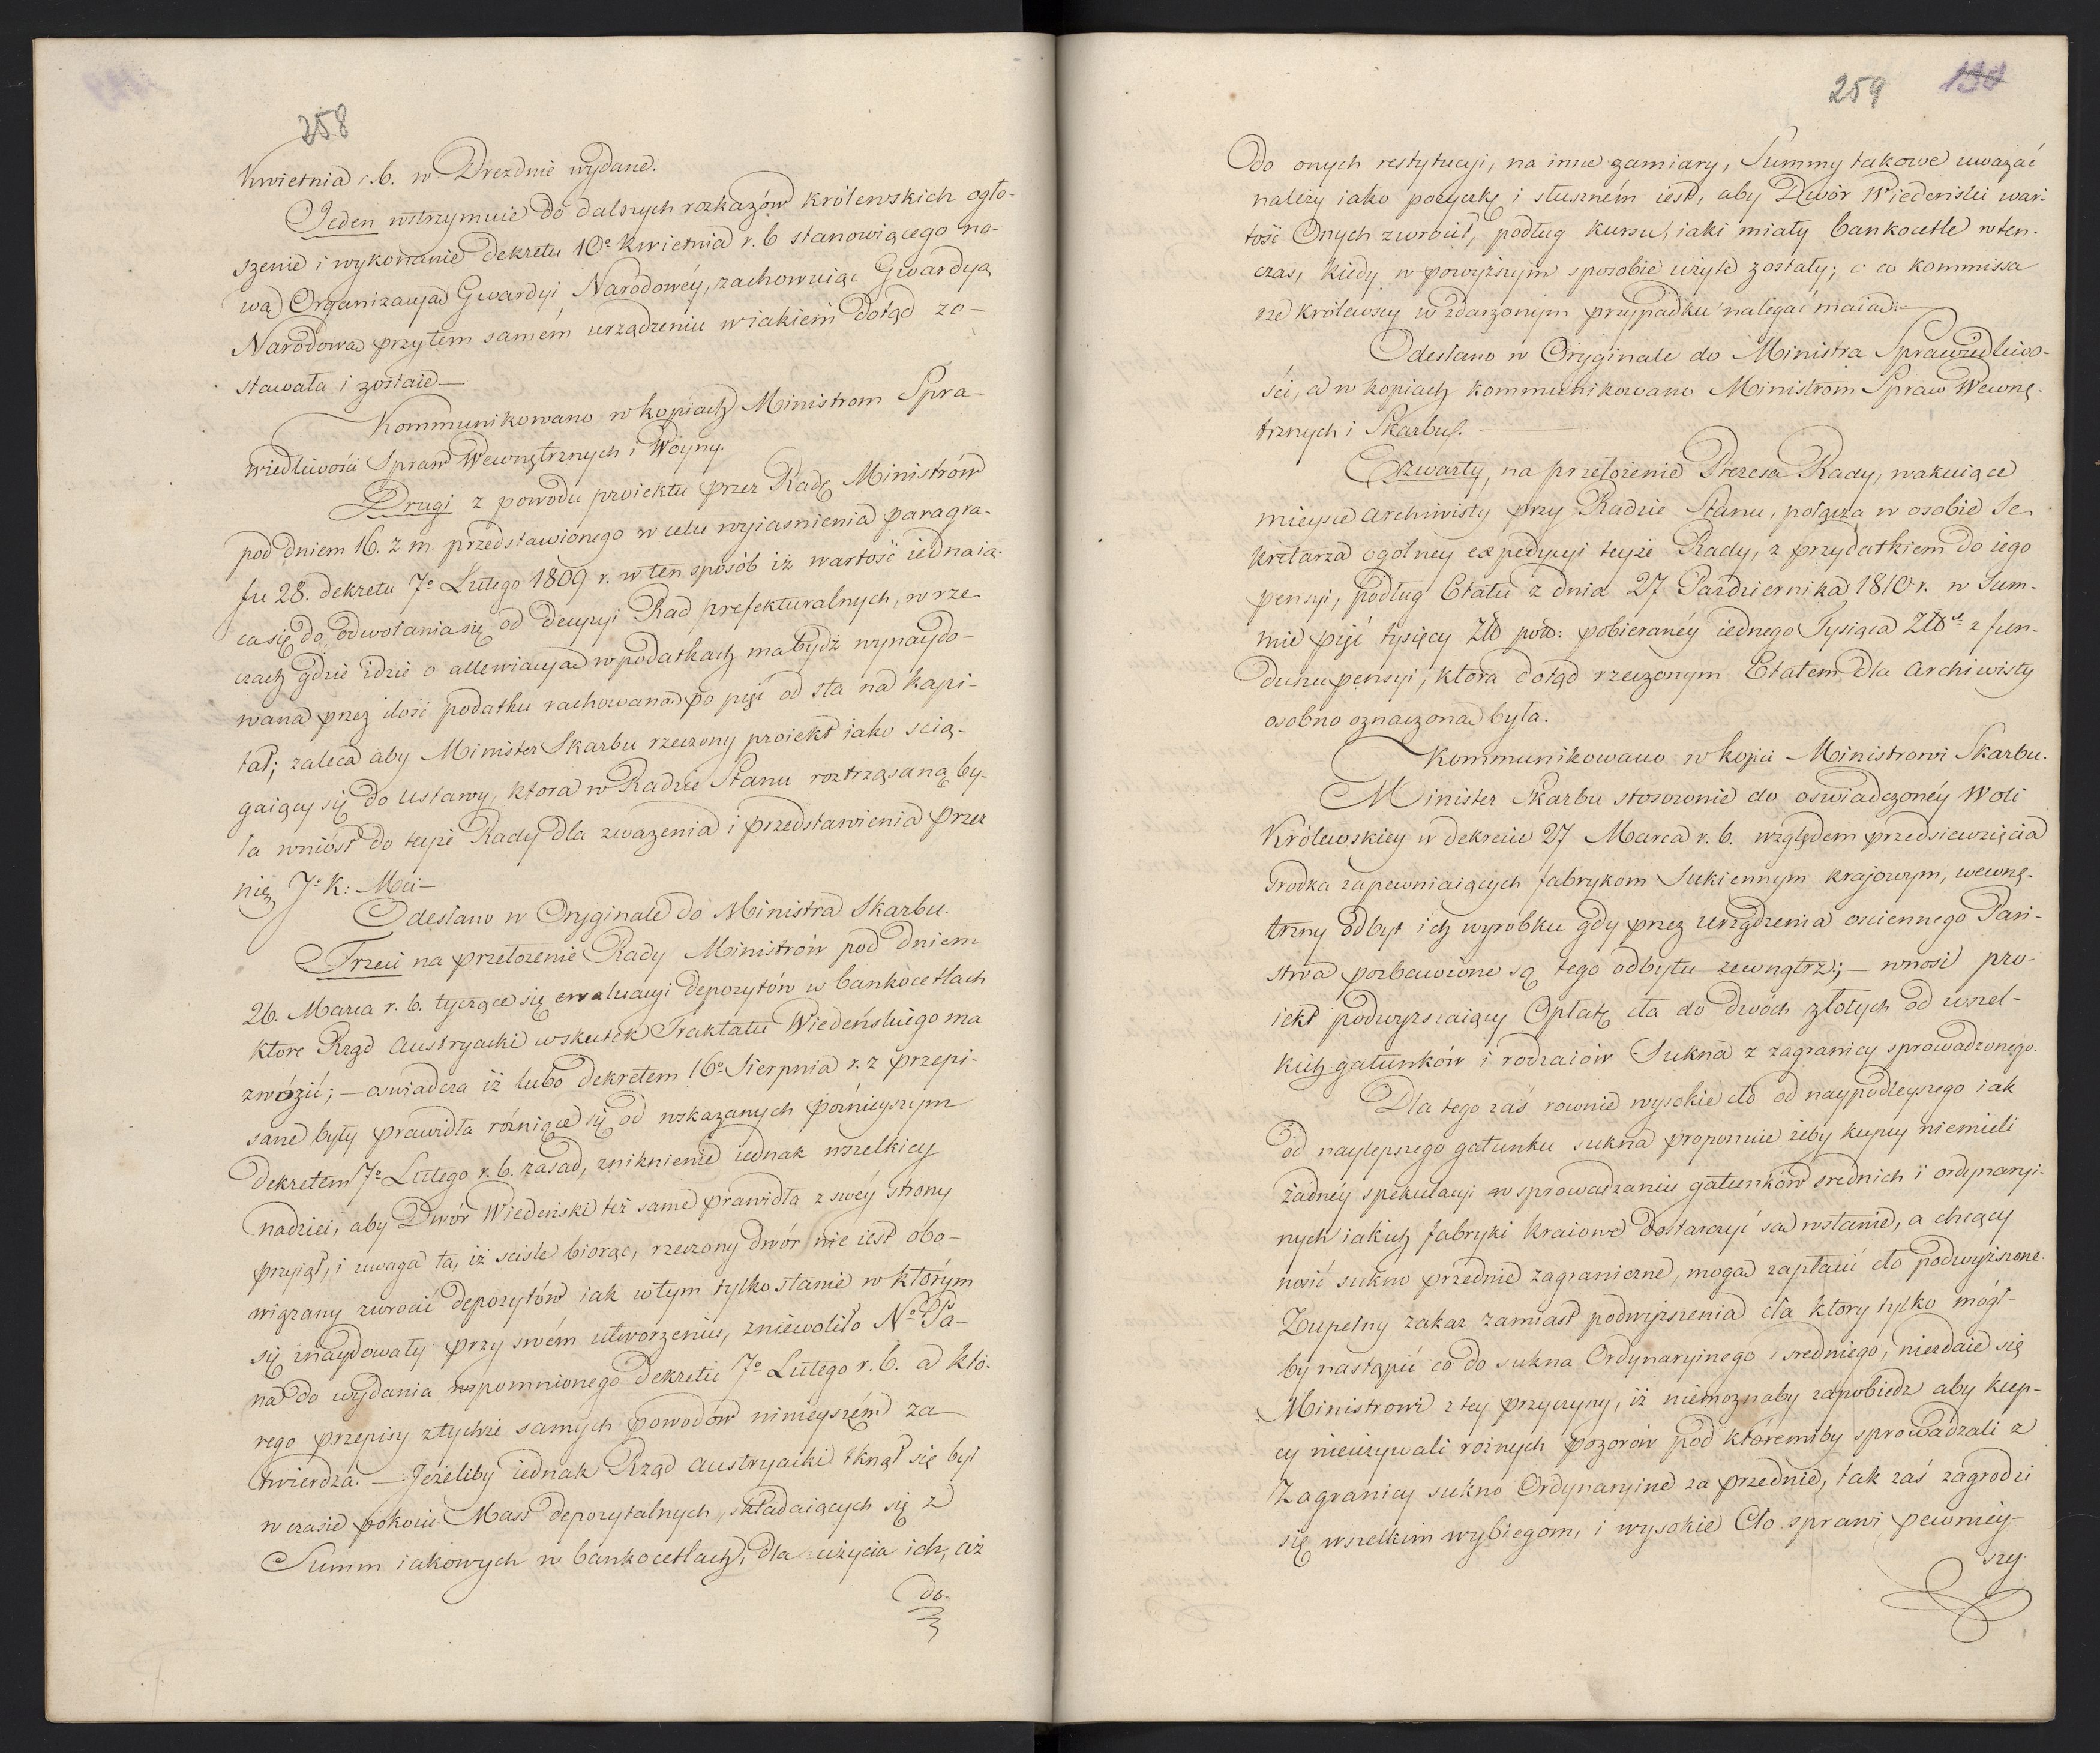 258
Kwietnia r.b. w Dreznie wydane.
Jeden wstrzymuie do dalszych rozkazów królewskich ogło-
szenie i wykonanie dekretu 10º Kwietnia r.b stanowiącego no-
wą Organizacyą Gwardyi Narodowéy, zachowuiąc Gwardyą
Narodową przytem samém urządzeniu w iakiem dotąd zo-
stawała i zostaie—
Kommunikowano w kopiach Ministrom Spra-
wiedliwości Spraw Wewnętrznych i Woyny.
Drugi z powodu proiektu przez Radę Ministrów
pod dniem 16. z m. przedstawionego w celu wyiasnienia paragra-
fu 28. dekretu 7º Lutego 1809 r. w ten sposób iż wartość iednaią-
ca się do odwołania się od decyzyi Rad prefekturalnych, w rze-
czach gdzie idzie o allewiacyą w podatkach ma bydź wynaydo-
wana przez ilość podatku rachowaną po pięć od sta na kapi-
tał; zaleca aby Minister Skarbu rzeczony proiekt iako ścią-
gaiący się do ustawy, ktora w Radzie Stanu roztrząsaną by-
ła wniósł do teyże Rady dla zważenia i przedstawienia przez
nię J: K: Mci—
Odesłano w Oryginale do Ministra Skarbu.
Trzeci na przełożenie Rady Ministrów pod dniem
26. Marca r.b. tyczące się ewaluacyi depozytów w bankocetlach
ktore Rząd Austryacki wskutek Traktatu Wiedeńskiego ma
zwrócić; — oswiadcza iż lubo dekretem 16º Sierpnia r. z przepi-
sane były prawidła różniące się od wskazanych późnieyszym
dekretem 7º Lutego r.b. zasad, zniknienie iednak wszelkiey
nadziei, aby Dwór Wiedeński też same prawidła z swéy strony
przyiął, i uwaga ta, iż scisle biorąc, rzeczony dwór nie iest obo-
wiązany zwrocić depozytów iak w tym tylko stanie w którym
się znaydowały przy swém utworzeniu, zniewoliło Nº Pa-
na do wydania wspomnionego dekretu 7º Lutego r.b. a któ-
rego przepisy z tychże samych powodów ninieyszém za
twierdza. — Jeżeliby iednak Rząd Austryacki tknął się był
w czasie pokoiu Mass depozytalnych, składaiących się z
Summ iakowych w bankocetlach, dla użycia ich, aż
do
259
Do onych restytucyi, na inne zamiary, Summy takowe uważać
należy iako pożyczkę i słuszném iest, aby Dwór Wiedeński war-
tość Onych zwrócił, podług kursu, iaki miały bankocetle wten-
czas, kiedy w powyższym sposobie użyte zostały; o co kommissa
rze królewscy w zdarzonym przypadku nalegać maią.—
Odesłano w Oryginale do Ministra Sprawiedliwo-
ści, a w kopiach kommunikowano Ministrom Spraw Wewnę-
trznych i Skarbu.
Czwarty, na przełożenie Prezesa Rady, wakuiące
mieysce archiwisty przy Radzie Stanu, połącza w osobie Se-
kretarza ogólney expedycyi teyże Rady, z przydatkiem do iego
pensyi, podług Etatu z dnia 27 Pazdziernika 1810 r. w Sum-
mie pięć tysięcy Zło pols: pobieranéy iednego Tysiąca Złł z fun-
duszu pensyi, która dotąd rzeczonym Etatem dla archiwisty
osobno oznaczona była.
Kommunikowano w kopii Ministrowi Skarbu.
Minister Skarbu stosownie do oświadczonéy Woli
Królewskiey w dekrecie 27 Marca r.b. względem przedsiewzięcia
środka zapewniaiących fabrykom Sukiennym krajowym, wewnę-
trzny odbyt ich wyróbku gdy przez urządzenia ościennego Pań-
stwa pozbawione są tego odbytu zewnątrz; — wnosi pro-
iekt podwyższaiący Opłatę cła do dwóch złotych od wszel-
kich gatunków i rodzaiów Sukna z zagranicy sprowadzonego.
Dla tego zaś rownie wysokie cło od naypodleyszego iak
od naylepszego gatunku sukna proponuie żeby kupcy niemieli
żadnéy spekulacyi w sprowadzaniu gatunków srednich i ordynaryi-
nych iakich fabryki kraiowe dostarczyć są wstanie, a chcący
nosić sukno przednie zagraniczne, mogą zapłacić cło podwyższone.
Zupełny zakaz zamiast podwyższenia cła ktory tylko mógł-
by nastąpić co do sukna Ordynaryinego i sredniego, niezdaie się
Ministrowi z tey przyczyny, iż niemożnaby zapobiedz aby kup-
cy nieużywali rożnych pozorów pod któremiby sprowadzali z
Zagranicy sukno Ordynaryine za przednie, tak zaś zagrodzi
się wszelkim wybiegom, i wysokie Cło sprawi pewniey-
szy.